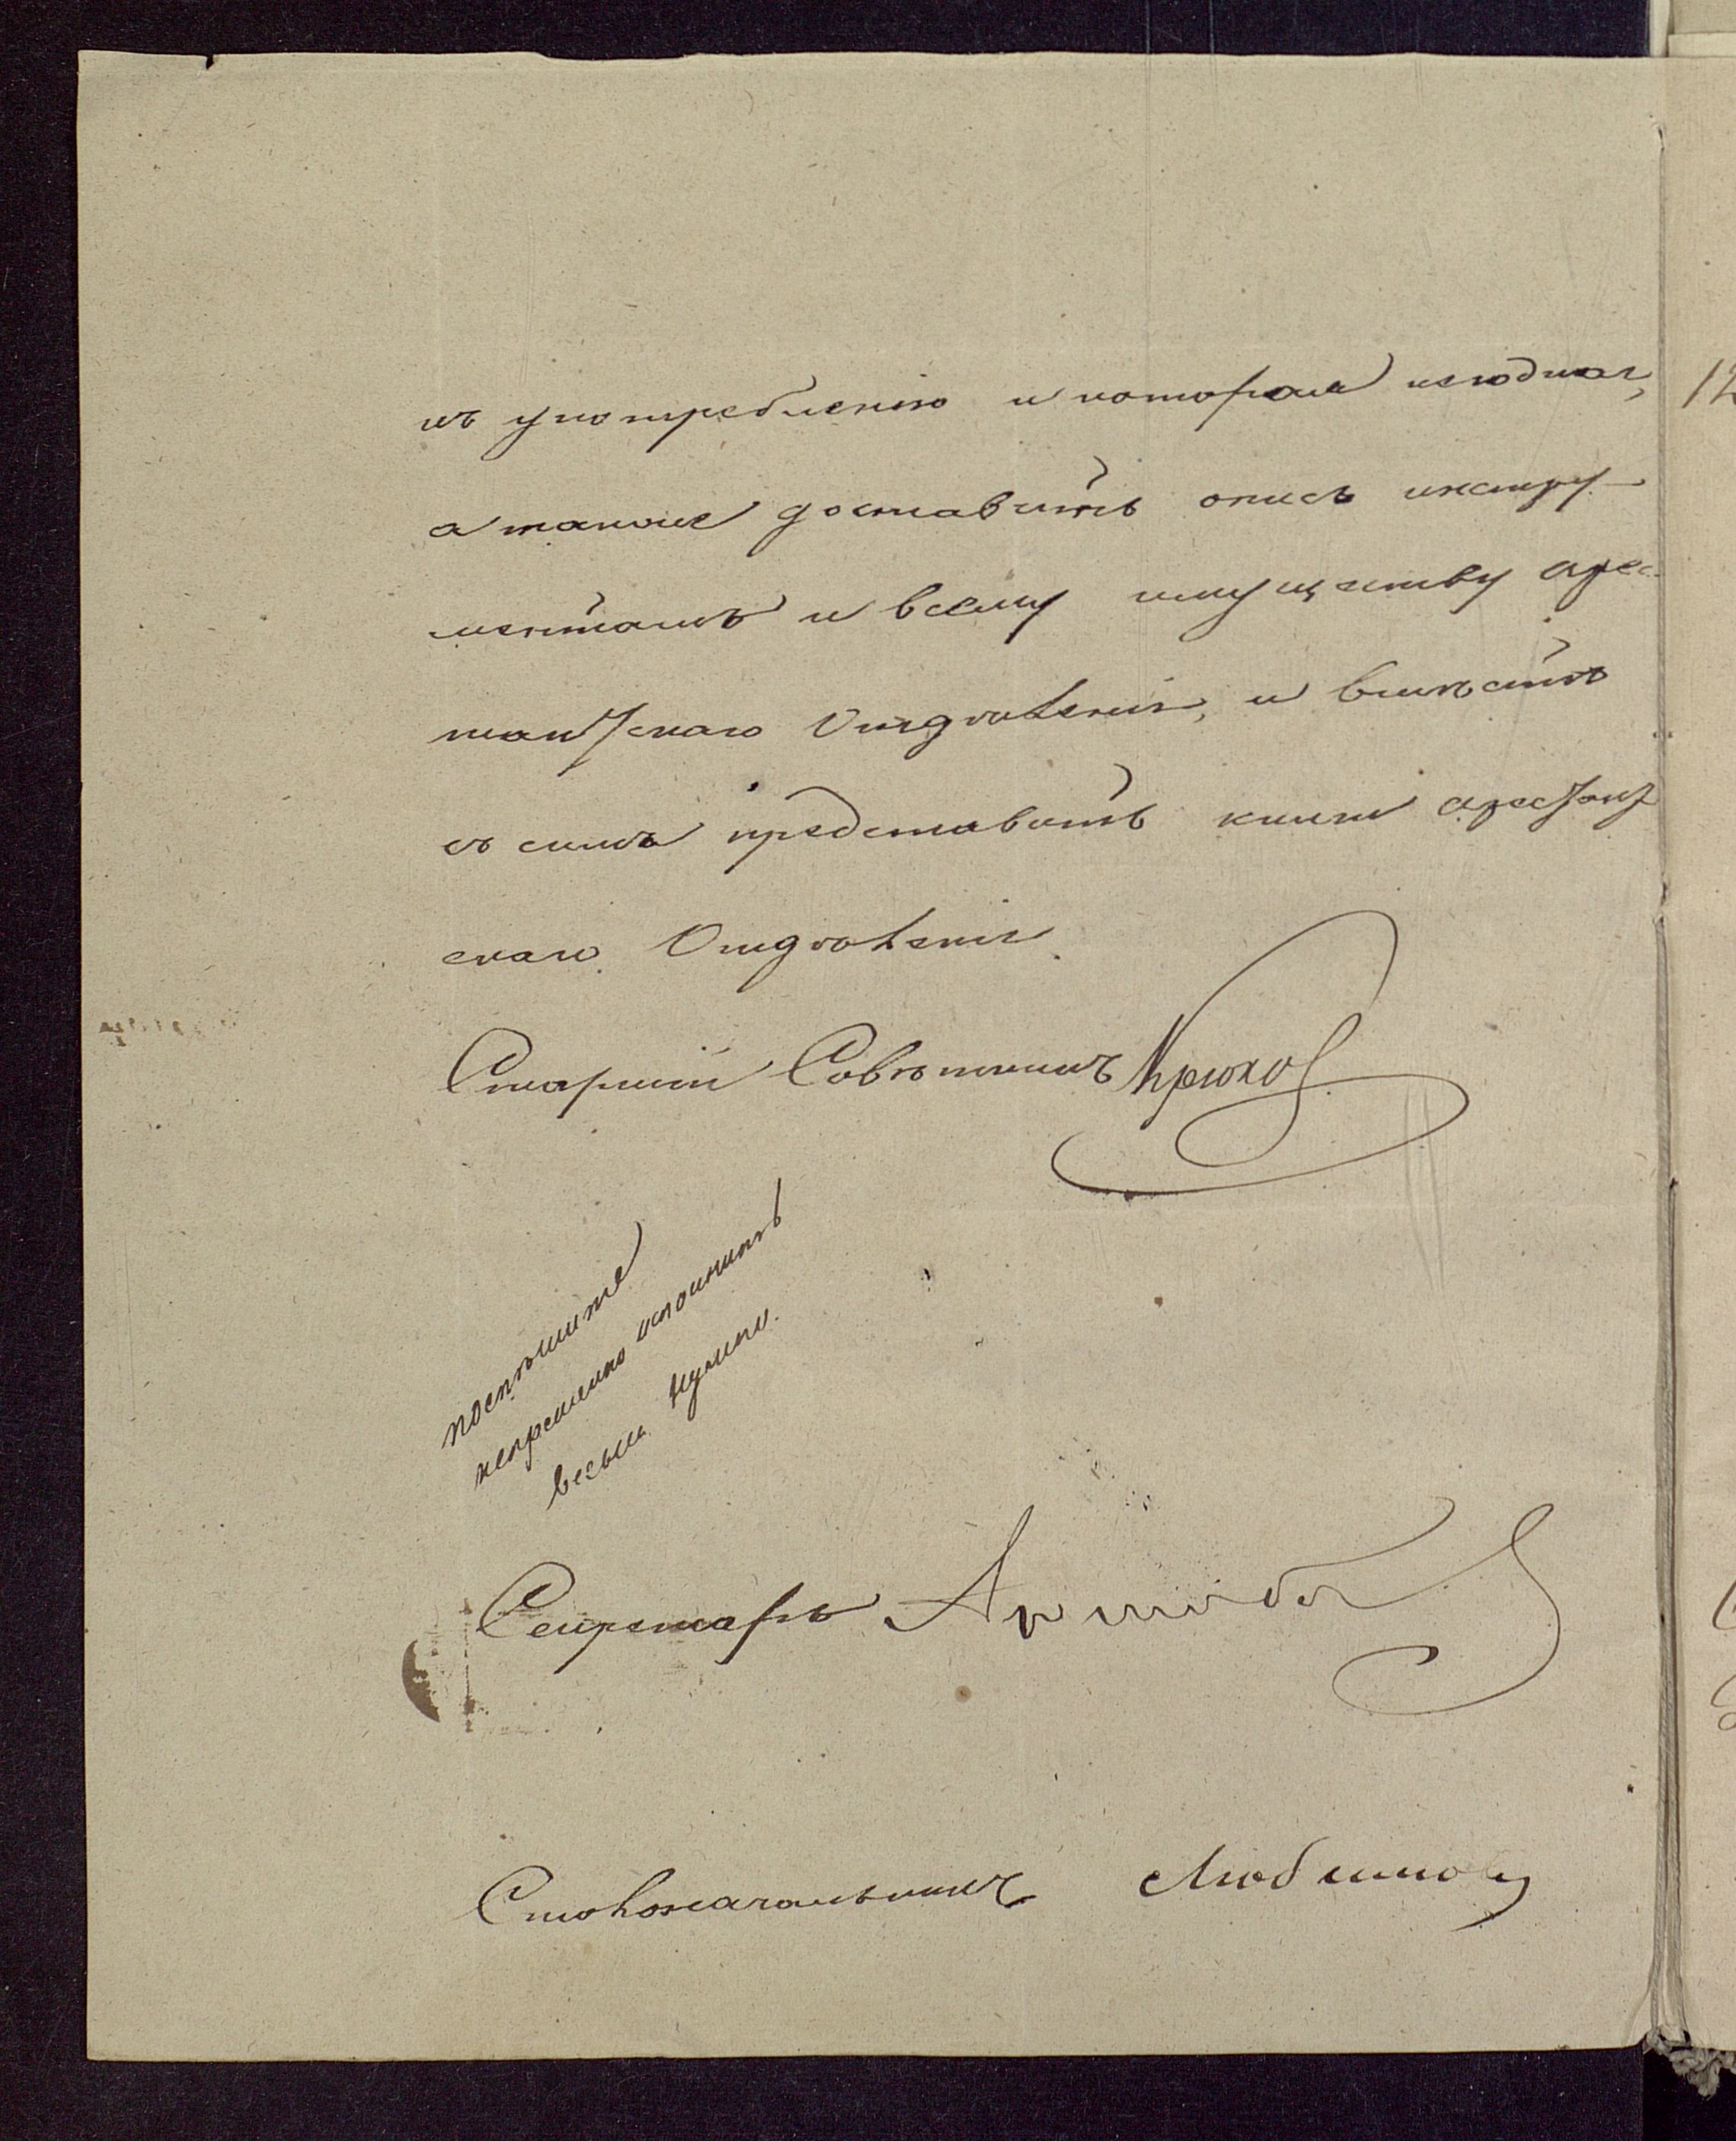 къ употребленію и которыя негодны,
а также доставить опись инстру-
ментамъ и всему имуществу арес-
тантскаго Отдѣленія, и вмѣстѣ
съ симъ представить книги арестант
скаго Отдѣленія.
Старшій Совѣтникъ Крюков
поспѣшите
непременно исполнить
весьма нужно.
Секретарь
Столоначальникъ Любимовъ
12